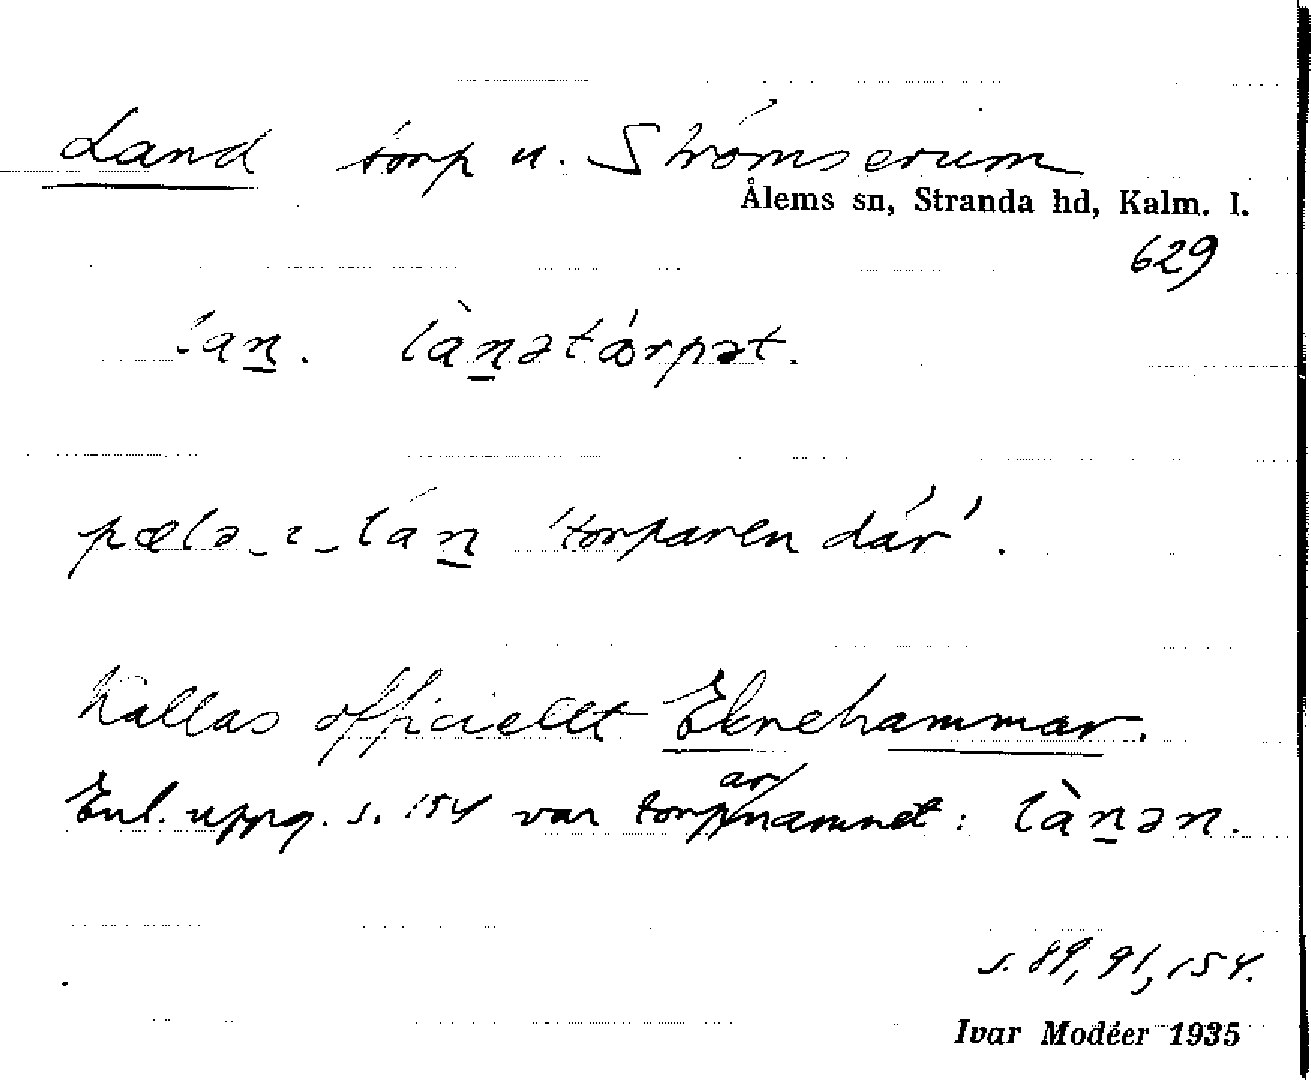 Land torp u. Strömserum
Ålems sn, Stranda hd, Kalm. l.
629
lan̲. làn̲ətǻrpət.
pælə_ɩ_lán̲ 'torparen där'.
Kallas officiellt Eknehammar.
Enl. uppg. s. 154 var torparnamnet: làn̲ən.
s. 89, 91, 154.
Ivar Modéer 1935